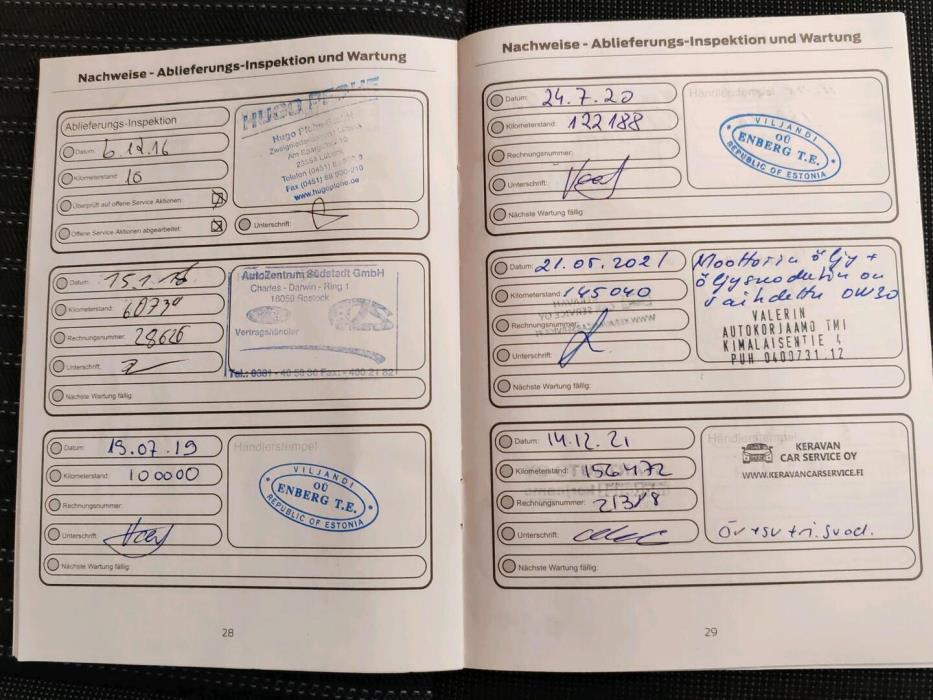 Nachweise - Ablieferungs-Inspektion und Wartung
Ablieferungs-Inspektion
Datum: 6.12.16
Kilometerstand: 16
Überprüft auf offene Service Aktionen:
Offene Service Aktionen abgearbeitet:
HUGO PFOHE
Hugo Pfohe GmbH
Zweigniederlassung Lübeck
23554 Lübeck
Telefon (0451)
Fax (0451) 88 900-210
www.hugopfohe.de
Unterschrift:
Datum: 15.1.18
Kilometerstand:
Rechnungsnummer:
Unterschrift:
AutoZentrum Südstadt GmbH
Charles - Darwin - Ring 1
18059 Rostock
Vertragshändler
Tel.: 0381 - 40 50 30 Fax: - 400 21 82
Nächste Wartung fällig:
Datum: 19.07.19
Kilometerstand: 100000
Rechnungsnummer:
Unterschrift:
Händlerstempel
VILJANDI
OÜ
ENBERG T.E.
REPUBLIC OF ESTONIA
Nächste Wartung fällig:
28
Nachweise - Ablieferungs-Inspektion und Wartung
Datum: 24.7.20
Kilometerstand: 122188
Rechnungsnummer:
Unterschrift:
Händlerstempel
VILJANDI
OÜ
ENBERG T.E.
REPUBLIC OF ESTONIA
Nächste Wartung fällig:
Datum: 21.05.2021
Kilometerstand: 145040
Rechnungsnummer:
Unterschrift:
Moottorin öljy +
öljysuodatin on
vaihdettu 0W30
VALERIN
AUTOKORJAAMO TMI
KIMALAISENTIE 4
PUH 0400731 12
Nächste Wartung fällig:
Datum: 14.12.21
Kilometerstand: 156472
Rechnungsnummer: 21318
Unterschrift:
Händlerstempel
KERAVAN
CAR SERVICE OY
WWW.KERAVANCARSERVICE.FI
Öv+sv+ri.suod.
Nächste Wartung fällig:
29